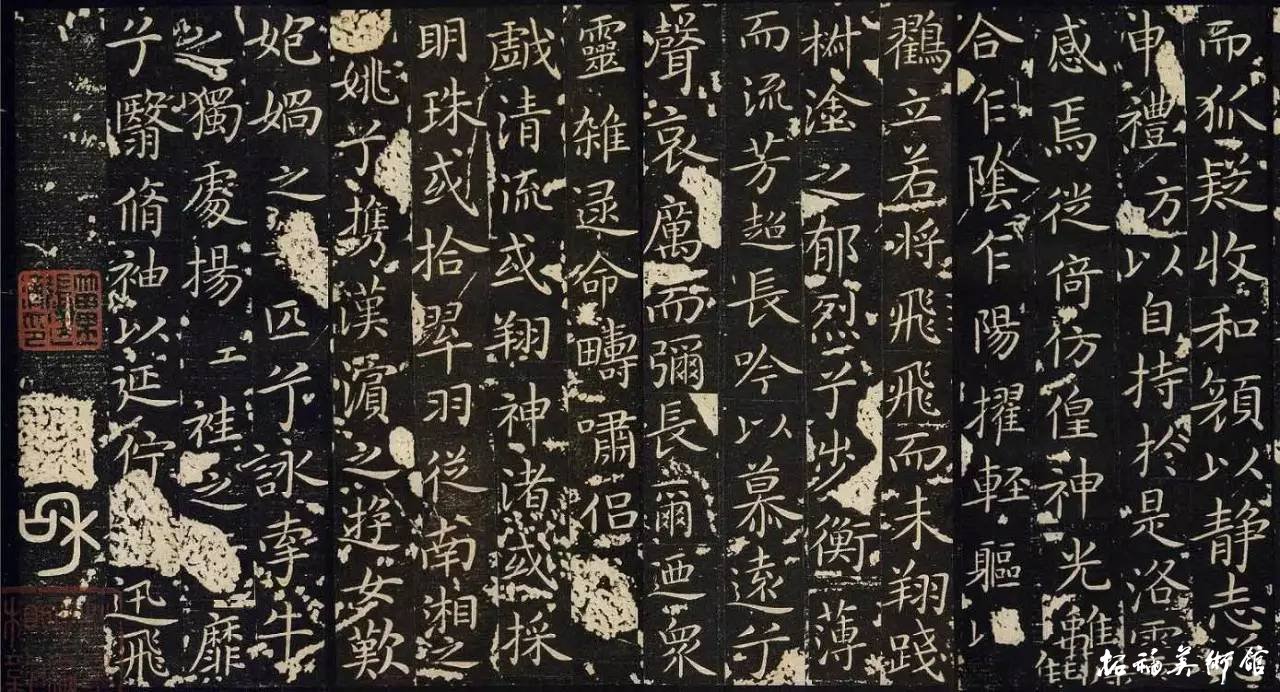 而狐疑收和顔以静志
申禮方以自持於是洛靈
感焉徙倚彷徨神光離
合乍陰乍陽擢輕軀以
鸛立若將飛飛而未翔踐
椒塗之郁烈兮步衡薄
而流芳超長吟以慕遠兮
聲哀厲而彌長爾迺衆
靈雜遝命疇嘯侣
戯清流或翔神渚或採
明珠或拾翠羽從南湘之
姚兮攜漢濱之遊女歎
妑媧之匹兮詠牽牛
之獨處揚袿之靡
兮翳脩袖以延佇迅飛
美術館